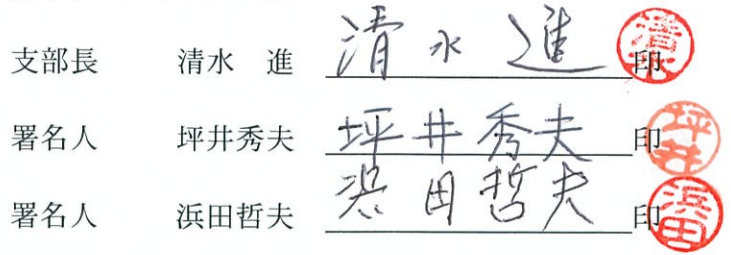 支部長 清水 進 清水進 印 清水
署名人 坪井秀夫 坪井秀夫 印 坪井
署名人 浜田哲夫 浜田哲夫 印 浜田